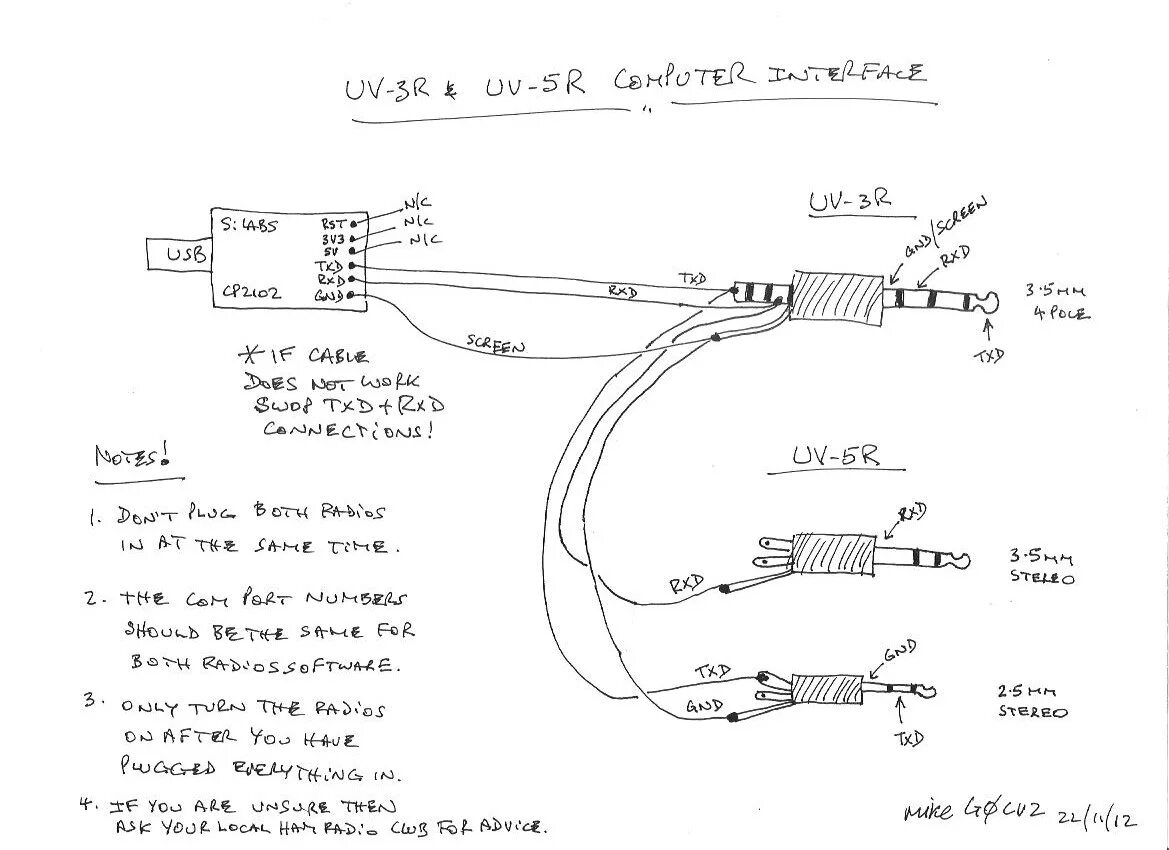 UV-3R & UV-5R COMPUTER INTERFACE
UV-3R
N/C
N/C
N/C
SiLABS
RST
3V3
5V
USB
TXD
RXD
CP2102
GND
TXD
RXD
SCREEN
GND/SCREEN
RXD
3.5MM
4 POLE
TXD
* IF CABLE
DOES NOT WORK
SWOP TXD + RXD
CONNECTIONS!
NOTES!
1. DON'T PLUG BOTH RADIOS
IN AT THE SAME TIME.
2. THE COM PORT NUMBERS
SHOULD BE THE SAME FOR
BOTH RADIOS SOFTWARE.
3. ONLY TURN THE RADIOS
ON AFTER YOU HAVE
PLUGGED EVERYTHING IN.
4. IF YOU ARE UNSURE THEN
ASK YOUR LOCAL HAM RADIO CLUB FOR ADVICE.
UV-5R
RXD
RXD
3.5MM
STEREO
TXD
GND
GND
TXD
2.5MM
STEREO
Mike GØCVZ 22/11/12